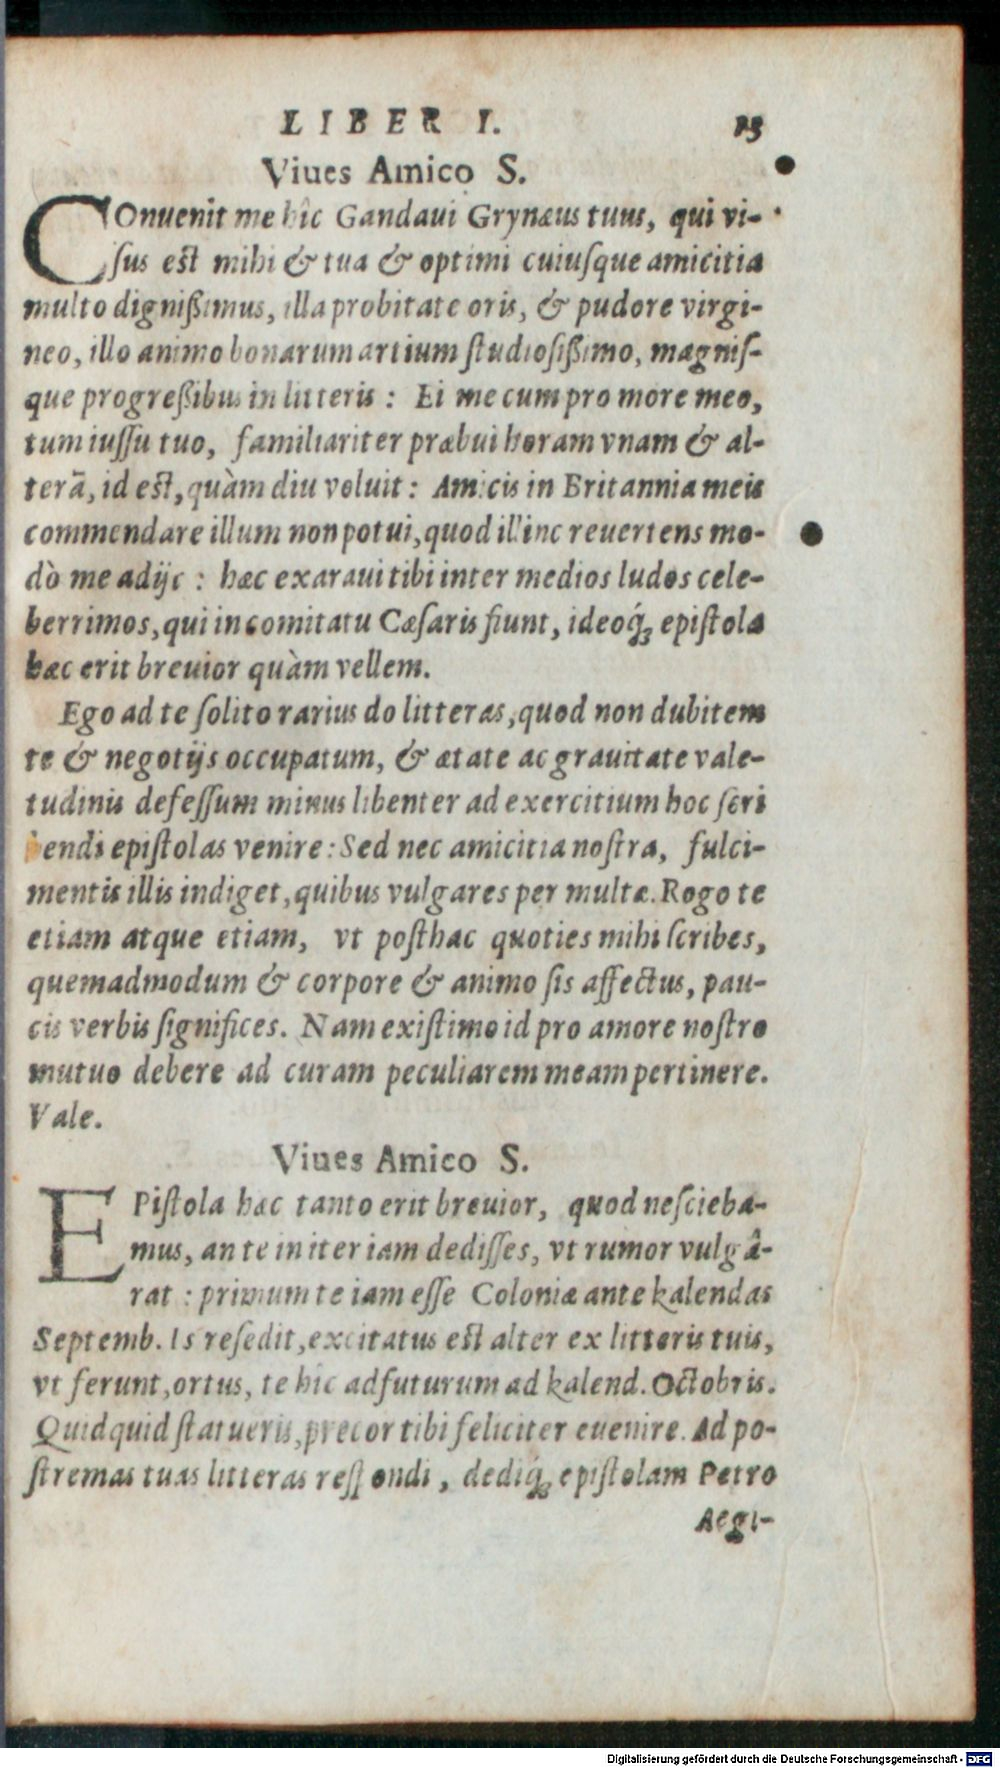 LIBER I. 15
Viues Amico S.
COnuenit me hîc Gandaui Grynæus tuus, qui vi-
ſus est mihi & tua & optimi cuiuſque amicitia
multo digniſsimus, illa probitate oris, & pudore virgi-
neo, illo animo bonarum artium ſtudioſiſsimo, magniſ-
que progreſsibus in litteris : Ei me cum pro more meo,
tum iuſſu tuo, familiariter præbui horam vnam & al-
terã, id est, quàm diu voluit : Amicis in Britannia meis
commendare illum non potui, quod illinc reuertens mo-
dò me adijt : hæc exaraui tibi inter medios ludos cele-
berrimos, qui in comitatu Cæſaris fiunt, ideoq́; epiſtola
hæc erit breuior quàm vellem.
Ego ad te ſolito rarius do litteras, quod non dubitem
te & negotijs occupatum, & ætate ac grauitate vale-
tudinis defeſſum minus libenter ad exercitium hoc ſcri
bendi epiſtolas venire : Sed nec amicitia noſtra, fulci-
mentis illis indiget, quibus vulgares per multæ. Rogo te
etiam atque etiam, vt poſthac quoties mihi ſcribes,
quemadmodum & corpore & animo ſis affectus, pau-
cis verbis ſignifices. Nam exiſtimo id pro amore noſtro
mutuo debere ad curam peculiarem meam pertinere.
Vale.
Viues Amico S.
EPiſtola hæc tanto erit breuior, quod neſcieba-
mus, an te in iter iam dediſſes, vt rumor vulgâ-
rat : primum te iam eſſe Coloniæ ante kalendas
Septemb. Is reſedit, excitatus est alter ex litteris tuis,
vt ferunt, ortus, te hîc adfuturum ad kalend. Octobris.
Quidquid ſtatueris, precor tibi feliciter euenire. Ad po-
ſtremas tuas litteras reſpondi, dediq́; epiſtolam Petro
Aegi-
Digitalisierung gefördert durch die Deutsche Forschungsgemeinschaft - DFG